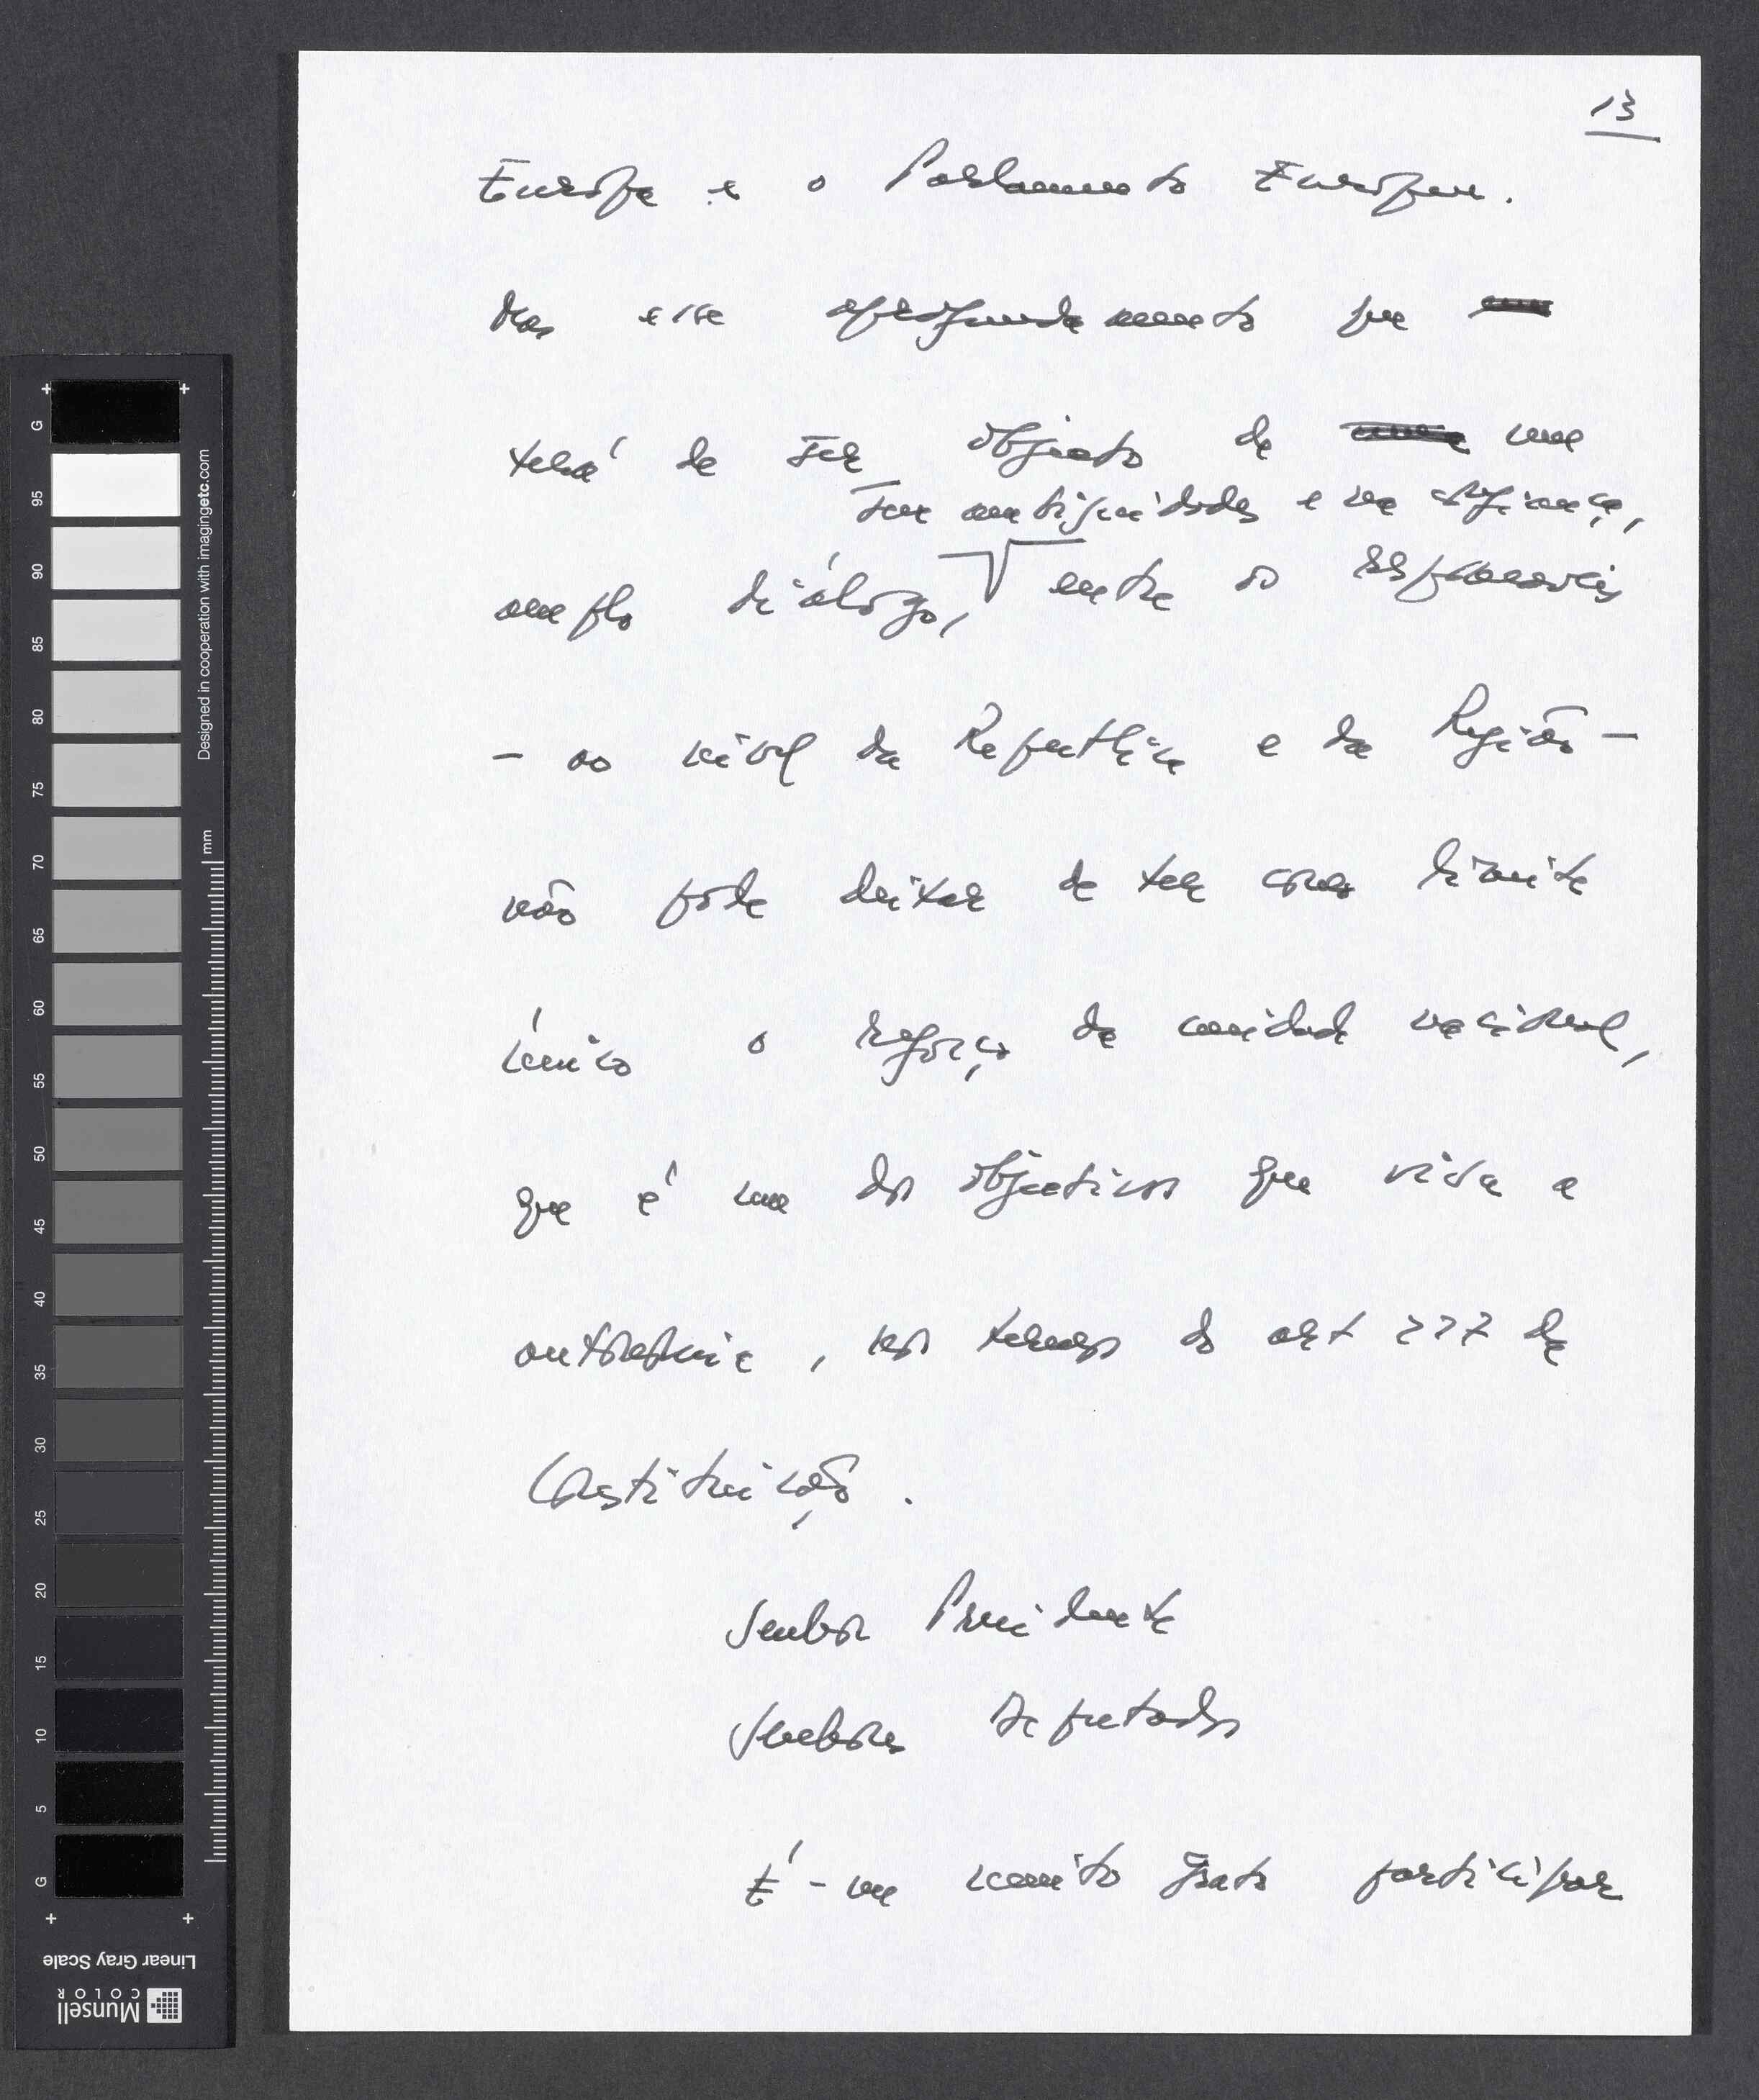 13
Europa e o Parlamento Europeu.
Mas esse aprofundamento que
terá de ser objecto de um
sem ambiguidades e na confiança,
amplo diálogo, entre os responsáveis
- ao nível da República e da Região -
não pode deixar de ter como limite
único o reforço da unidade nacional,
que é um dos objectivos que visa a
autonomia, nos termos do art 227 da
Constituição.
Senhor Presidente
Senhores Deputados
É-me muito grato participar
G
95
90
85
80
75
70
65
60
55
50
45
40
35
30
25
20
15
10
5
G
mm
Designed in cooperation with imagingetc.com
Linear Gray Scale
Munsell
COLOR